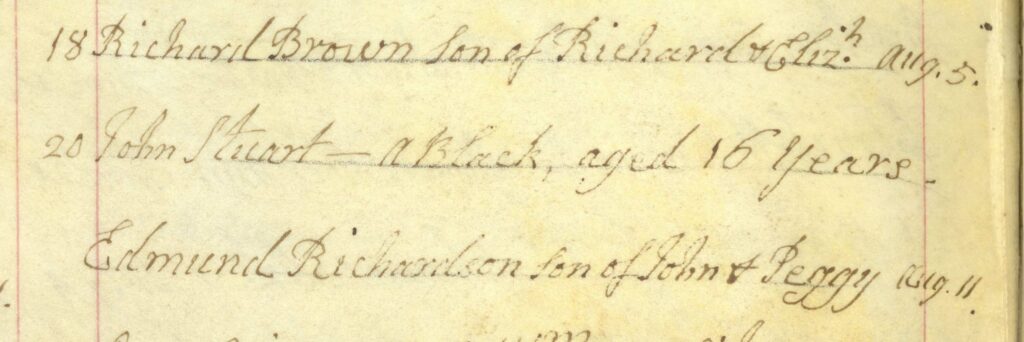 18 Richard Brown son of Richard & Eliz.h Aug. 5.
20 John Stuart — a Black, aged 16 Years.
Edmund Richardson son of John & Peggy Aug. 11.